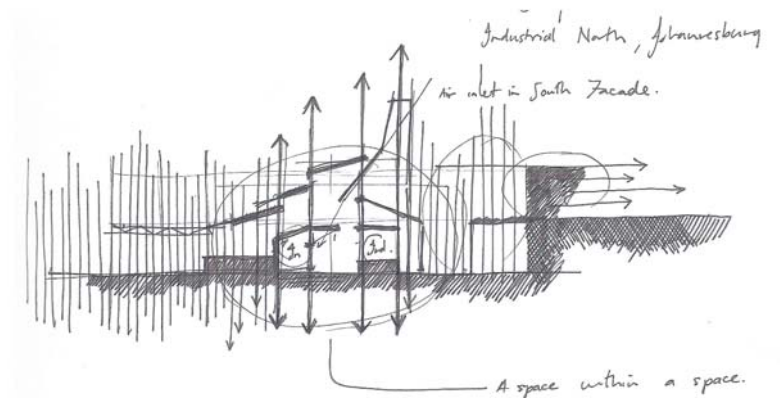 Industrial North, Johannesburg
Air inlet in South Facade.
In
Ind.
A space within a space.